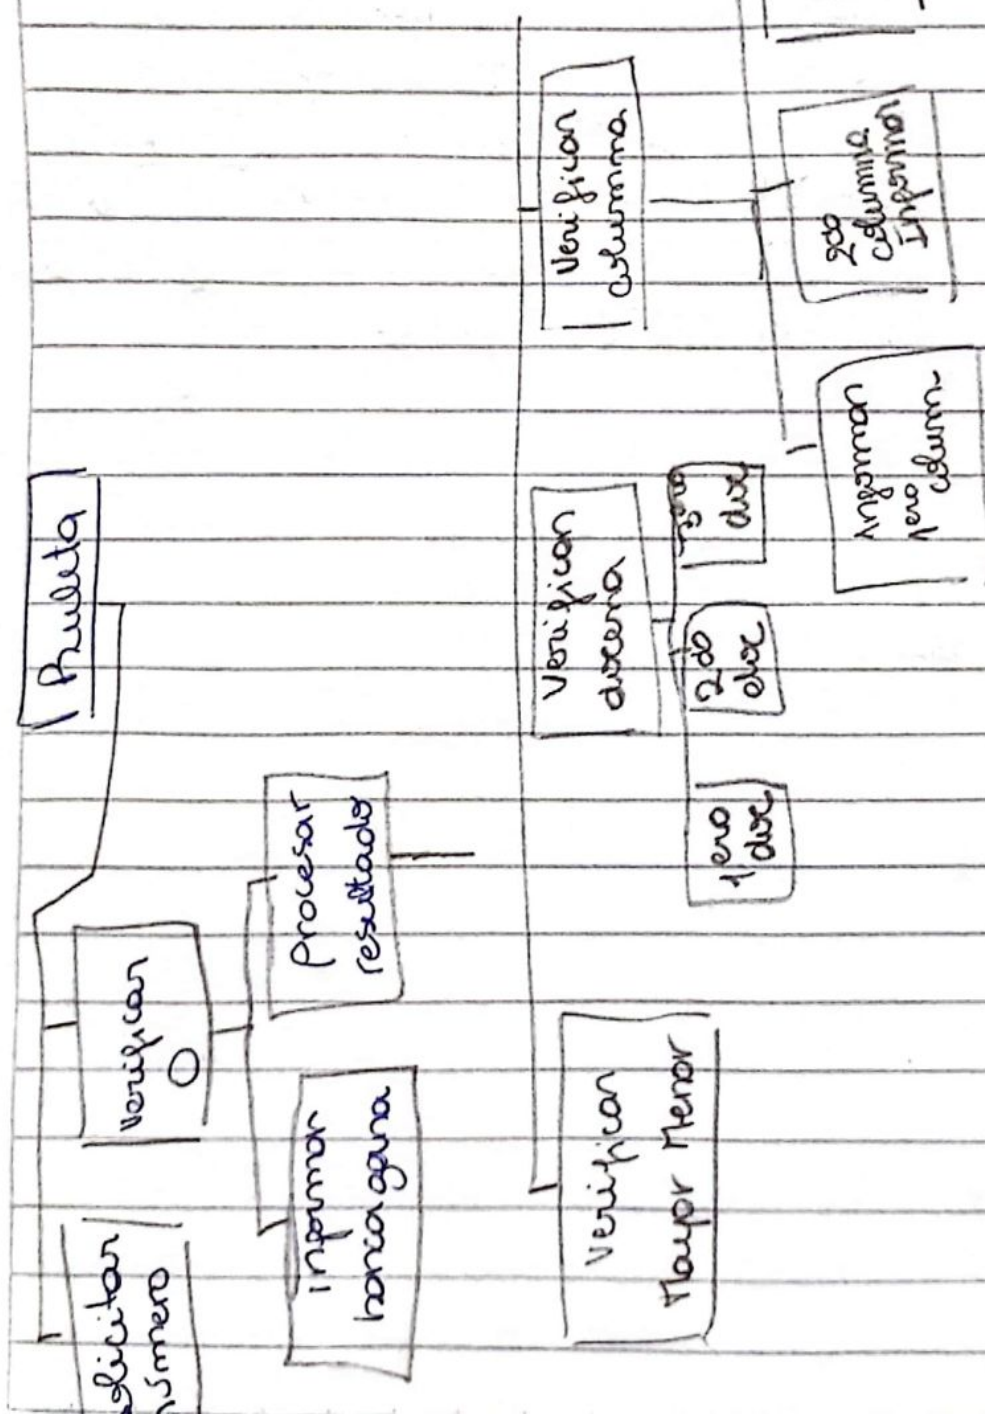 Ruleta
solicitar
número
Verificar
0
Informar
banca gana
Procesar
resultado
Verificar
Mayor Menor
Verificar
docena
1ero
doc
2do
doc
3ero
doc
Verificar
columna
Informar
1ero
colum-
2do
columna
Informar